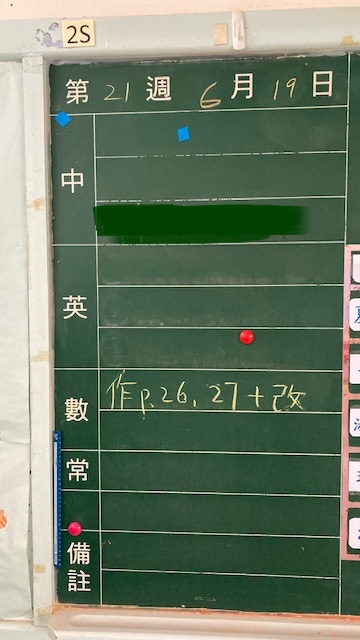 2S
第 21 週 6 月 19 日
中
英
數 作p.26、27+改
常
備註